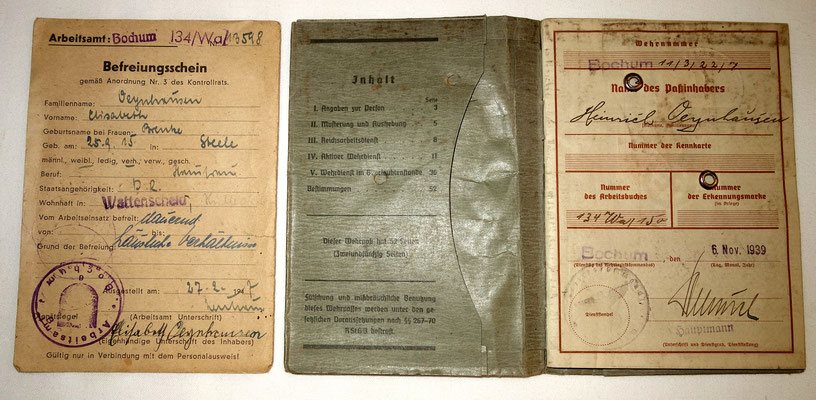 Arbeitsamt: Bochum 134/Wa/13598
Befreiungsschein
gemäß Anordnung Nr. 3 des Kontrollrats.
Familienname: Oeynhausen
Vorname: Elisabeth
Geburtsname bei Frauen:
Geb. am: 25.9.15 in Steele
männl., weibl., ledig, verh., verw., gesch.
Beruf: Hausfrau
Staatsangehörigkeit: D.R.
Wohnhaft in Wattenscheid
Vom Arbeitseinsatz befreit: dauernd
von: bis:
Grund der Befreiung: Häusliche Verhältnisse
Ausgestellt am: 27.2. 1947
(Arbeitsamt Unterschrift)
Elisabeth Oeynhausen
(Eigenhändige Unterschrift des Inhabers)
Gültig nur in Verbindung mit dem Personalausweis!
Inhalt
Seite
I. Angaben zur Person 3
II. Musterung und Aushebung 5
III. Reichsarbeitsdienst 8
IV. Aktiver Wehrdienst 11
V. Wehrdienst im Beurlaubtenstande 36
Bestimmungen 52
Dieser Wehrpaß hat 52 Seiten
(Zweiundfünfzig Seiten)
Fälschung und mißbräuchliche Benutzung
dieses Wehrpasses werden unter den ge-
setzlichen Voraussetzungen nach §§ 267-70
RStGB bestraft.
Wehrnummer
Bochum 11/3/22/7
Name des Paßinhabers
Heinrich Oeynhausen
Nummer der Kennkarte
Nummer
des Arbeitsbuches
Nummer
der Erkennungsmarke
134 Wa/150
Bochum, den 6. Nov. 1939
(Tag, Monat, Jahr)
Dienststempel
Hauptmann